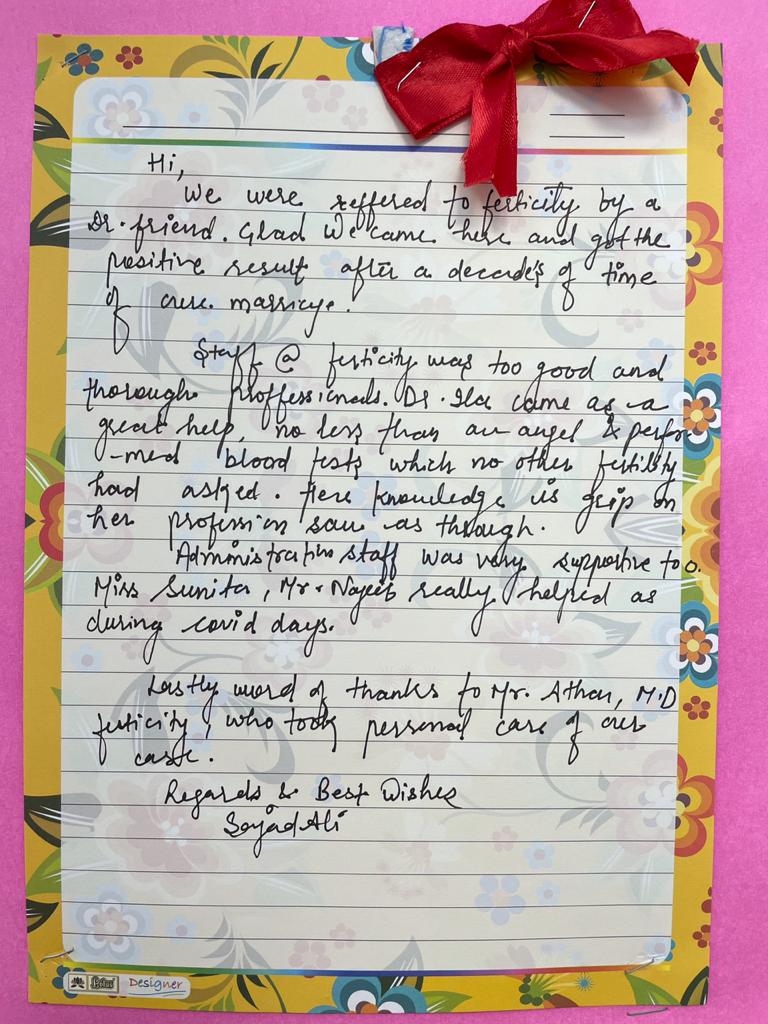 Hi,
We were reffered to ferticity by a
Dr. friend. Glad We came here and got the
positive result after a decade's of time
of our marriage.
Staff @ ferticity was too good and
thorough proffessionals. Dr. Ila came as a
great help, no less than an angel & perfor
-med blood tests which no other fertility
had asked. Here knowledge is grip on
her profession saw as through.
Administrative staff was very supportive too.
Miss Sunita, Mr. Nayeeb really helped as
during covid days.
Lastly word of thanks to Mr. Athar, M.D
ferticity, who took personal care of our
case.
Regards & Best Wishes
Seyad Ali
Lotus Designer